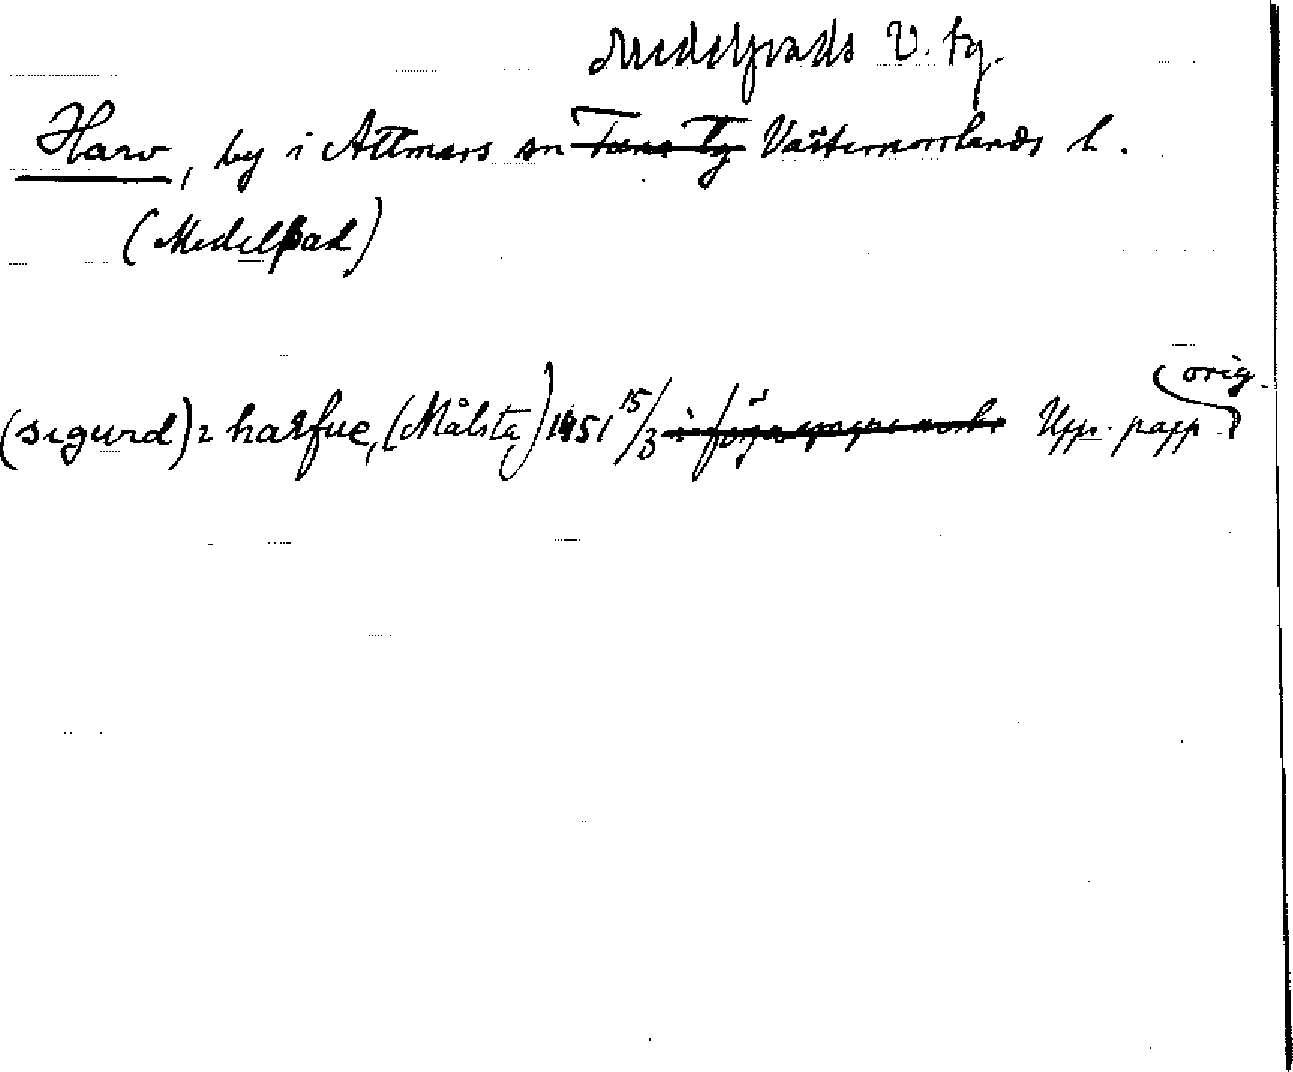 Medelpads V. tg.
Harv, by i Attmars sn Västernorrlands l.
(Medelpad)
orig.
(sigurd) i harfue, (Målsta) 1451 15/3 Upps. papp